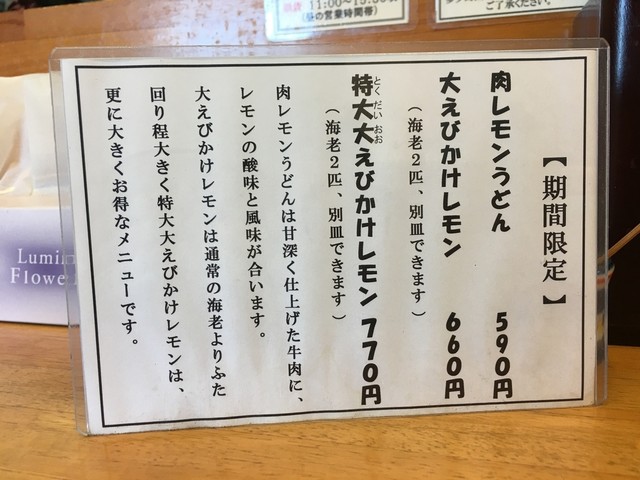 【期間限定】
肉レモンうどん 590円
大えびかけレモン 660円
（海老2匹、別皿できます）
とくだいおお
特大大えびかけレモン 770円
（海老2匹、別皿できます）
肉レモンうどんは甘深く仕上げた牛肉に、
レモンの酸味と風味が合います。
大えびかけレモンは通常の海老よりふた
回り程大きく特大大えびかけレモンは、
更に大きくお得なメニューです。
11:00～15:00
(昼の営業時間帯)
ご了承ください。
Lumi
Flowe